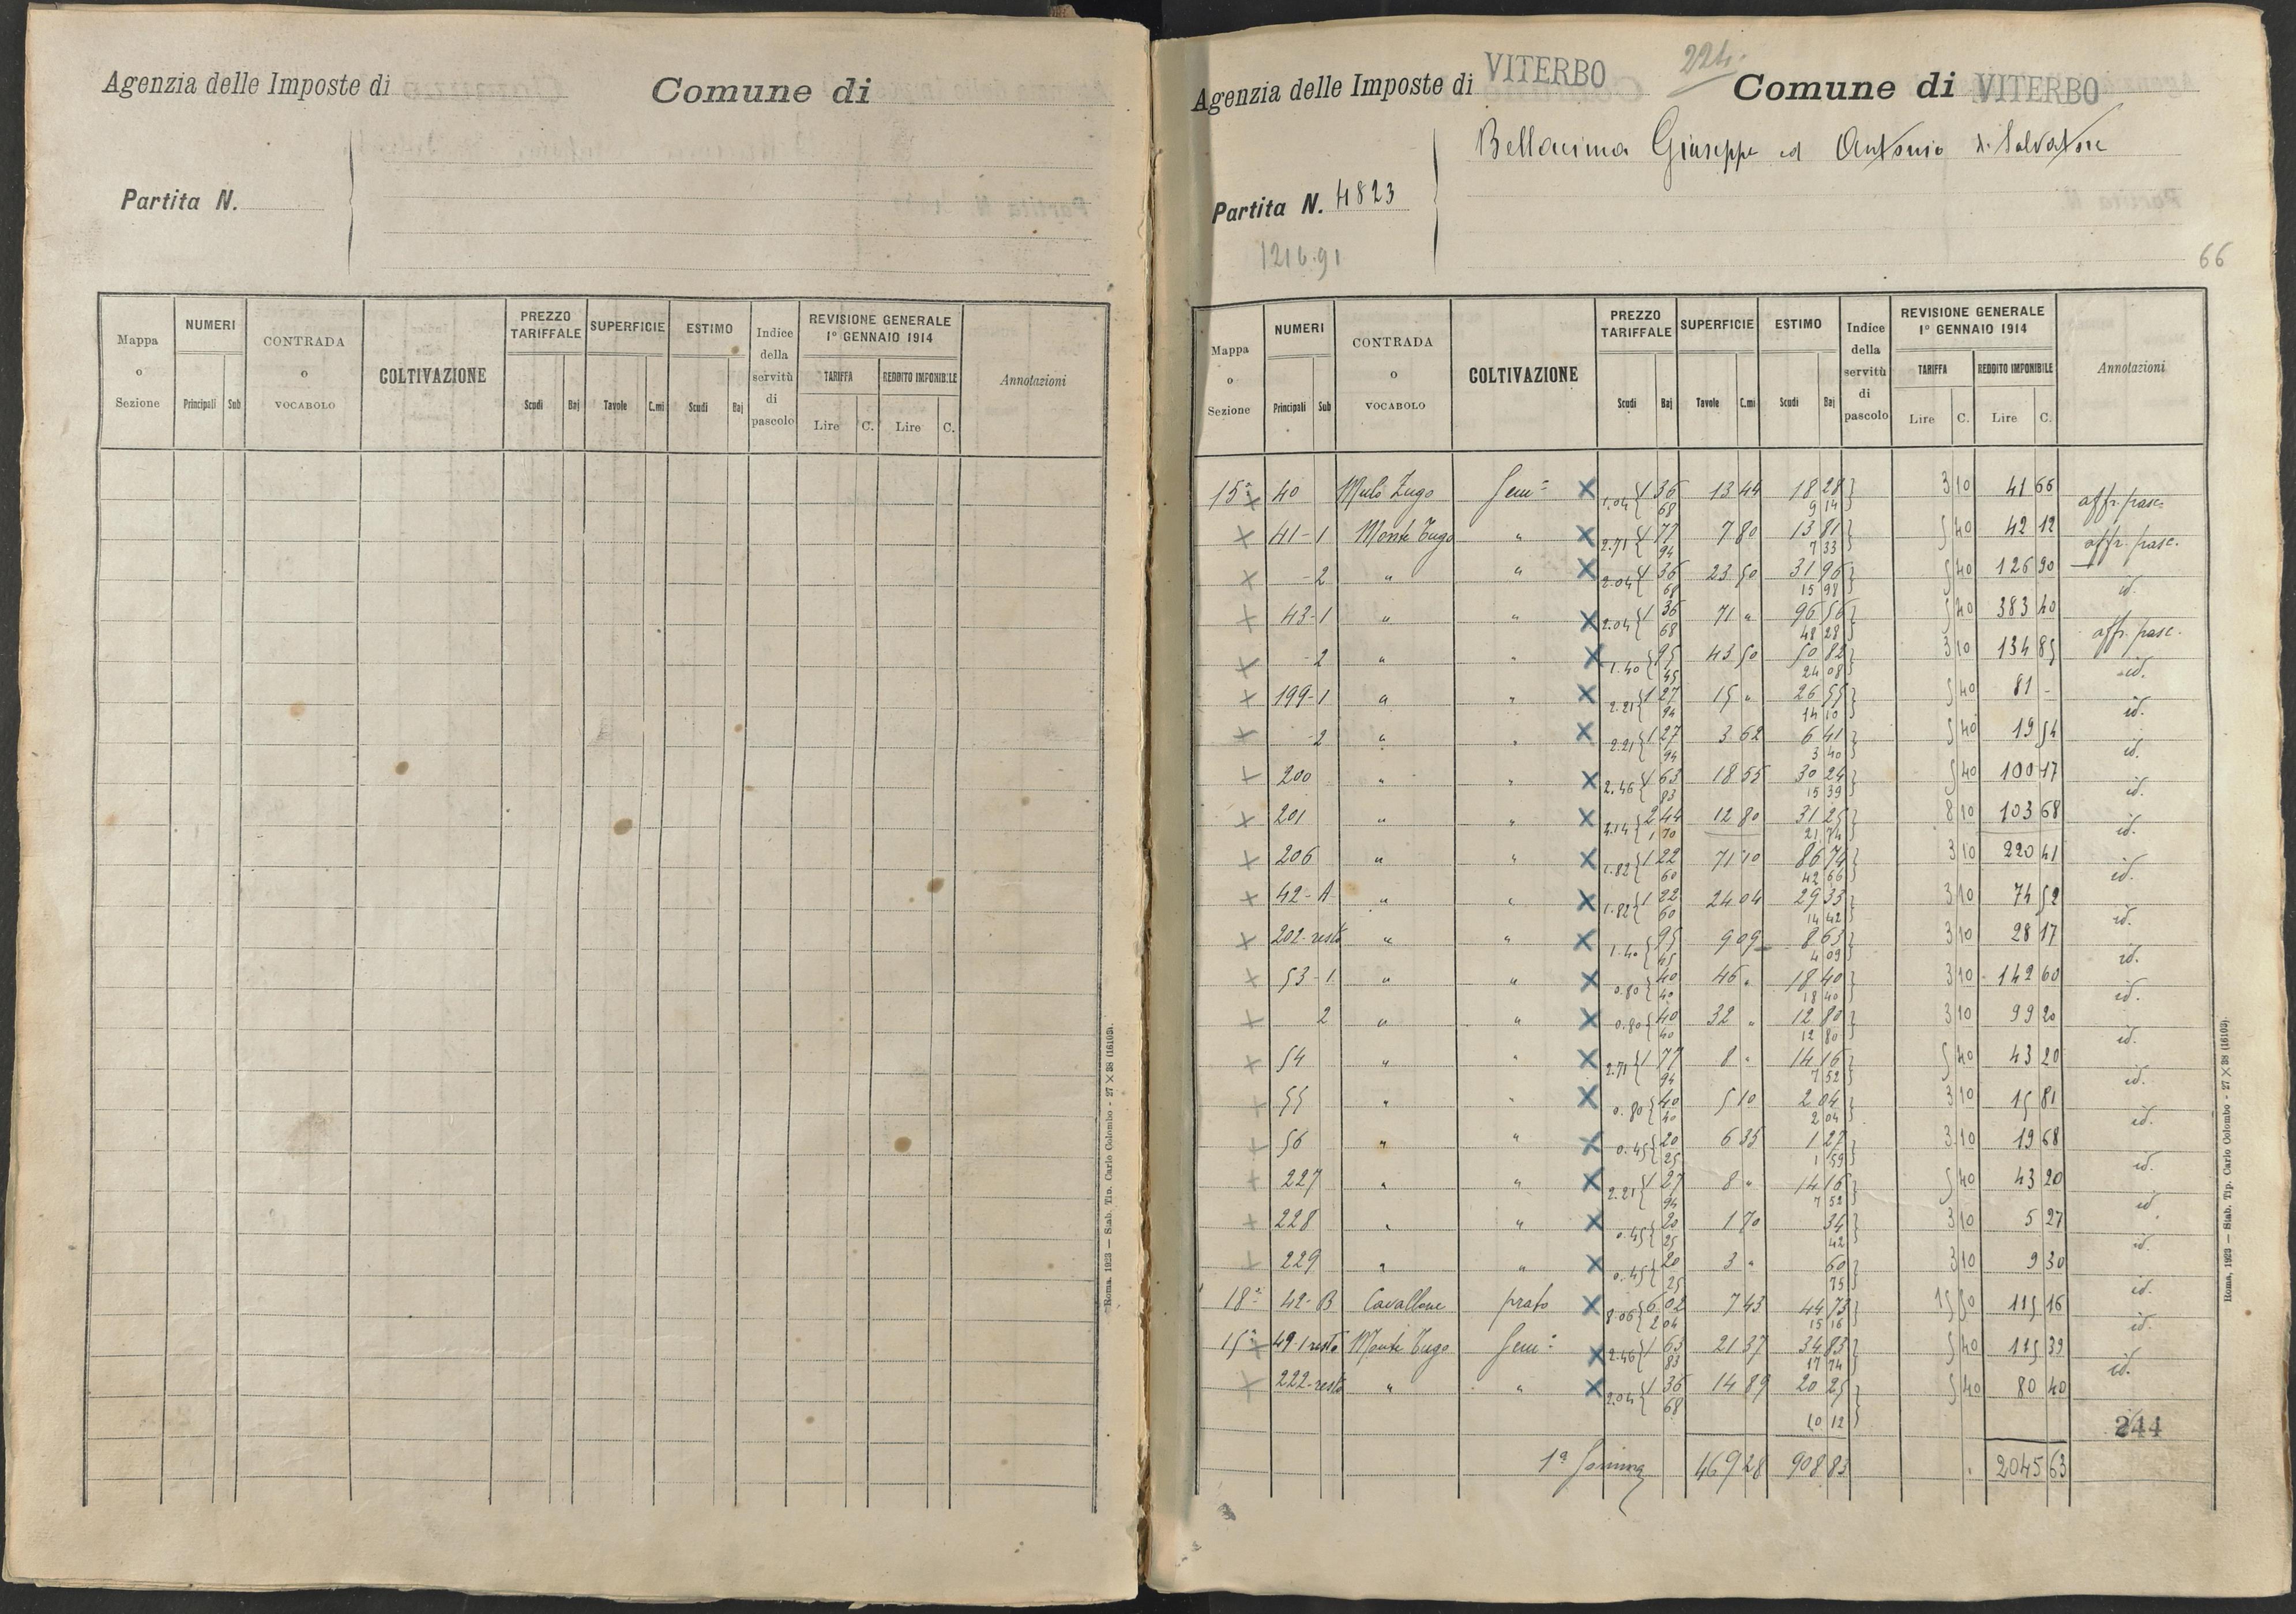 Agenzia delle Imposte di
Comune di
Partita N.
Mappa o Sezione
NUMERI
Principali Sub
CONTRADA o VOCABOLO
COLTIVAZIONE
PREZZO TARIFFALE
Scudi Baj
SUPERFICIE
Tavole C.mi
ESTIMO
Scudi Baj
Indice della servitù di pascolo
REVISIONE GENERALE 1° GENNAIO 1914
TARIFFA
Lire C.
REDDITO IMPONIBILE
Lire C.
Annotazioni
Roma. 1923 — Stab. Tip. Carlo Colombo - 27 × 38 (16103).
Agenzia delle Imposte di VITERBO
224.
Comune di VITERBO
Bellacima Giuseppe ed Antonio di Salvatore
Partita N. 4823
1216.91
66
Mappa o Sezione
NUMERI
Principali Sub
CONTRADA o VOCABOLO
COLTIVAZIONE
PREZZO TARIFFALE
Scudi Baj
SUPERFICIE
Tavole C.mi
ESTIMO
Scudi Baj
Indice della servitù di pascolo
REVISIONE GENERALE 1° GENNAIO 1914
TARIFFA
Lire C.
REDDITO IMPONIBILE
Lire C.
Annotazioni
15ª 40 Sem: 1.04 1 36 13 44 18 28 3 10 41 66 aff. pasc.
68 9 14
41-1 Monte Zugo " 2.71 1 77 7 80 13 81 5 40 42 12 aff. pasc.
94 7 33
-2 " " 2.04 1 36 23 50 31 96 5 40 126 90 id.
68 15 98
43-1 " " 2.04 1 36 71 " 96 56 5 40 383 40 aff. pasc.
68 48 28
-2 " " 1.40 95 43 50 50 82 3 10 134 85 id.
45 24 08
199-1 " " 2.21 1 27 15 " 26 55 5 40 81 - id.
94 14 10
-2 " " 2.21 1 27 3 62 6 41 5 40 19 54 id.
94 3 40
200 " " 2.46 1 63 18 55 30 24 5 40 100 17 id.
83 15 39
201 " " 2 44 12 80 31 25 8 10 103 68 id.
1 70 21 74
206 " " 1.82 1 22 71 10 86 74 3 10 220 41 id.
60 42 66
42-A " " 1.82 1 22 24 04 29 33 3 10 74 52 id.
60 14 42
202-resto " " 1.40 95 9 09 8 63 3 10 28 17 id.
45 4 09
53-1 " " 0.80 40 46 " 18 40 3 10 142 60 id.
40 18 40
2 " " 0.80 40 32 " 12 80 3 10 99 20 id.
40 12 80
54 " " 2.71 1 77 8 " 14 16 5 40 43 20 id.
94 7 52
55 " " 0.80 40 5 10 2 04 3 10 15 81 id.
40 2 04
56 " " 0.45 20 6 35 1 27 3 10 19 68 id.
25 1 59
227 " " 2.21 1 27 8 " 14 16 5 40 43 20 id.
94 7 52
228 " " 0.45 20 1 70 34 3 10 5 27 id.
25 42
229 " " 0.45 20 3 " 60 3 10 9 30 id.
25 75
18ª 42-B Cavallone prato 8.06 6 02 7 43 44 73 15 50 115 16 id.
2 04 15 16
15ª 49-1 resto Monte Zugo Sem: 2.46 1 63 21 37 34 83 5 40 115 39 id.
83 17 74
222-resto " " 2.04 1 36 14 89 20 25 5 40 80 40
68 10 12
244
1ª Somma 469 28 908 83 2045 63